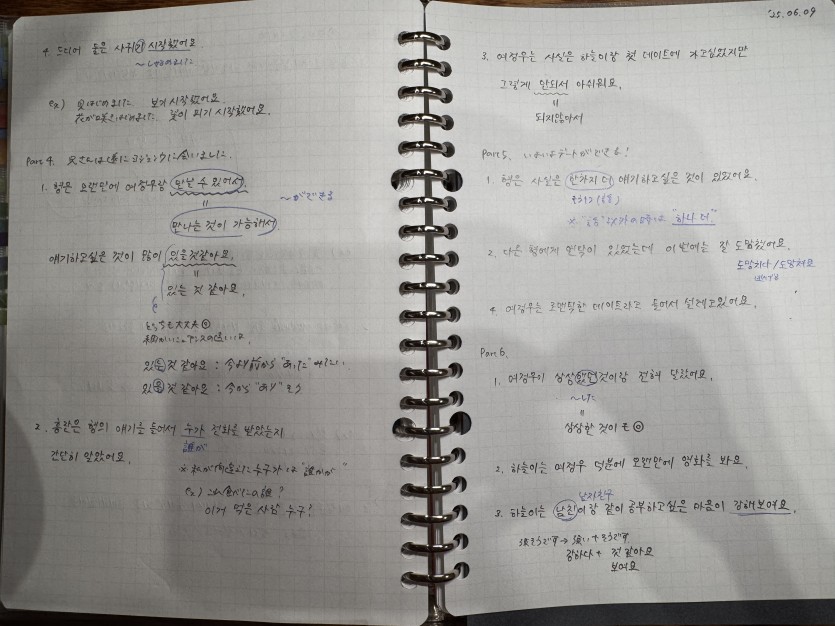 4. 드디어 둘은 사귀기 시작했어요.
~しはじめました
ex) 見はじめました 보기 시작했어요
花が咲きはじめました 꽃이 피기 시작했어요.
Part 4.
1. 형은 오랜만에 여정우랑 만날 수 있어서
=
~ができる
만나는 것이 가능해서
얘기하고싶은 것이 많이 있을것같아요.
=
있는 것 같아요.
どっちも大丈夫◎
있는 것 같아요 : 今より前から "あった" みたい
있을 것 같아요 : 今から "あり" そう
2. 홍란은 형의 얘기를 들어서 누가 전화를 받았는지
誰が
간단히 알았어요.
ex) これ食べたの誰?
이거 먹은 사람 누구?
'25.06.09
3. 여정우는 사실은 하늘이랑 첫 데이트에 가고싶었지만
그렇게 안되서 아쉬워요.
=
되지않아서
Part 5. いよいよデートができる!
1. 형은 사실은 한가지 더 얘기하고싶은 것이 있었어요.
"하나 더"
2. 다은 형에게 연락이 있었는데 이번에는 잘 도망쳤어요.
도망치다 / 도망쳐요
4. 여정우는 로맨틱한 데이트라고 들어서 설레고있어요.
Part 6.
1. 여정우이 상상했던것이랑 전혀 달랐어요.
~した
=
상상한 것이 も◎
2. 하늘이는 여정우 덕분에 오랜만에 영화를 봐요.
남자친구
3. 하늘이는 남친이랑 같이 공부하고싶은 마음이 강해보여요.
強そうです → 強い + そうです
강하다 + 것 같아요
보여요